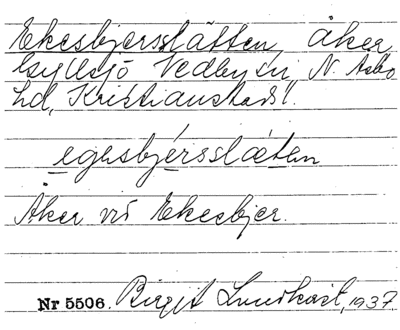 Ekesbjersslätten, åker
Gyllsjö Vedby sn, N. Åsbo
hd, Kristianstads l.
egesbjérsslæten
Åker vid Ekesbjer.
Nr 5506. Birgit Lundkvist, 1937